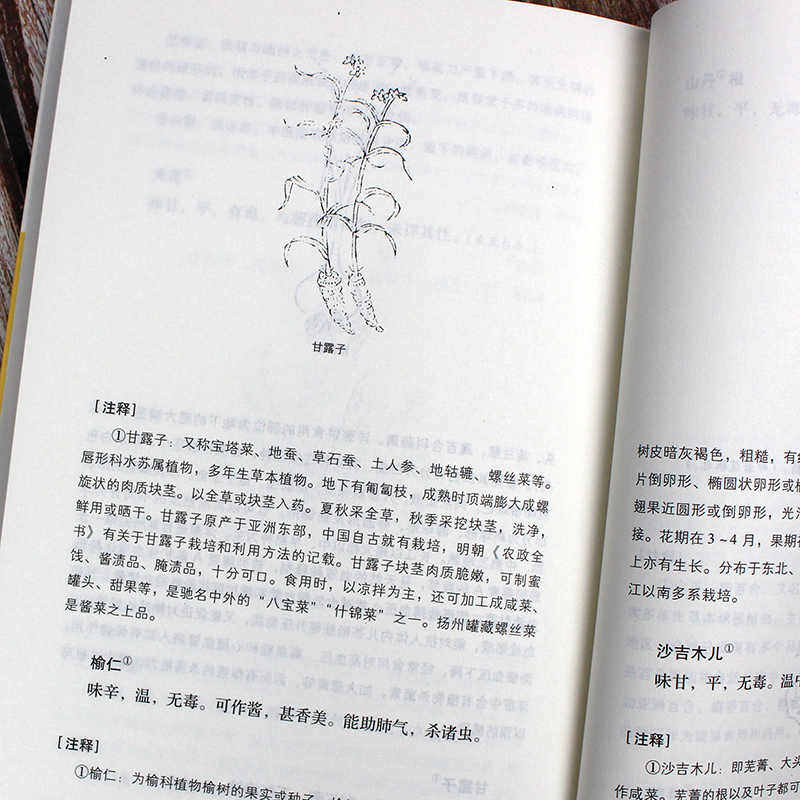 甘露子
［注释］
①甘露子：又称宝塔菜、地蚕、草石蚕、土人参、地牯辘、螺丝菜等。
唇形科水苏属植物，多年生草本植物。地下有匍匐枝，成熟时顶端膨大成螺
旋状的肉质块茎。以全草或块茎入药。夏秋采全草，秋季采挖块茎，洗净，
鲜用或晒干。甘露子原产于亚洲东部，中国自古就有栽培，明朝《农政全
书》有关于甘露子栽培和利用方法的记载。甘露子块茎肉质脆嫩，可制蜜
饯、酱渍品、腌渍品，十分可口。食用时，以凉拌为主，还可加工成咸菜、
罐头、甜果等，是驰名中外的“八宝菜”“什锦菜”之一。扬州罐藏螺丝菜
是酱菜之上品。
榆仁①
味辛，温，无毒。可作酱，甚香美。能助肺气，杀诸虫。
［注释］
①榆仁：为榆科植物榆树的果实或种子。
树皮暗灰褐色，粗糙，有
片倒卵形、椭圆状卵形或
翅果近圆形或倒卵形，光
接。花期在3~4月，果期
上亦有生长。分布于东北、
江以南多系栽培。
沙吉木儿①
味甘，平，无毒。温中
［注释］
①沙吉木儿：即芜菁、大头
作咸菜。芜菁的根以及叶子都可